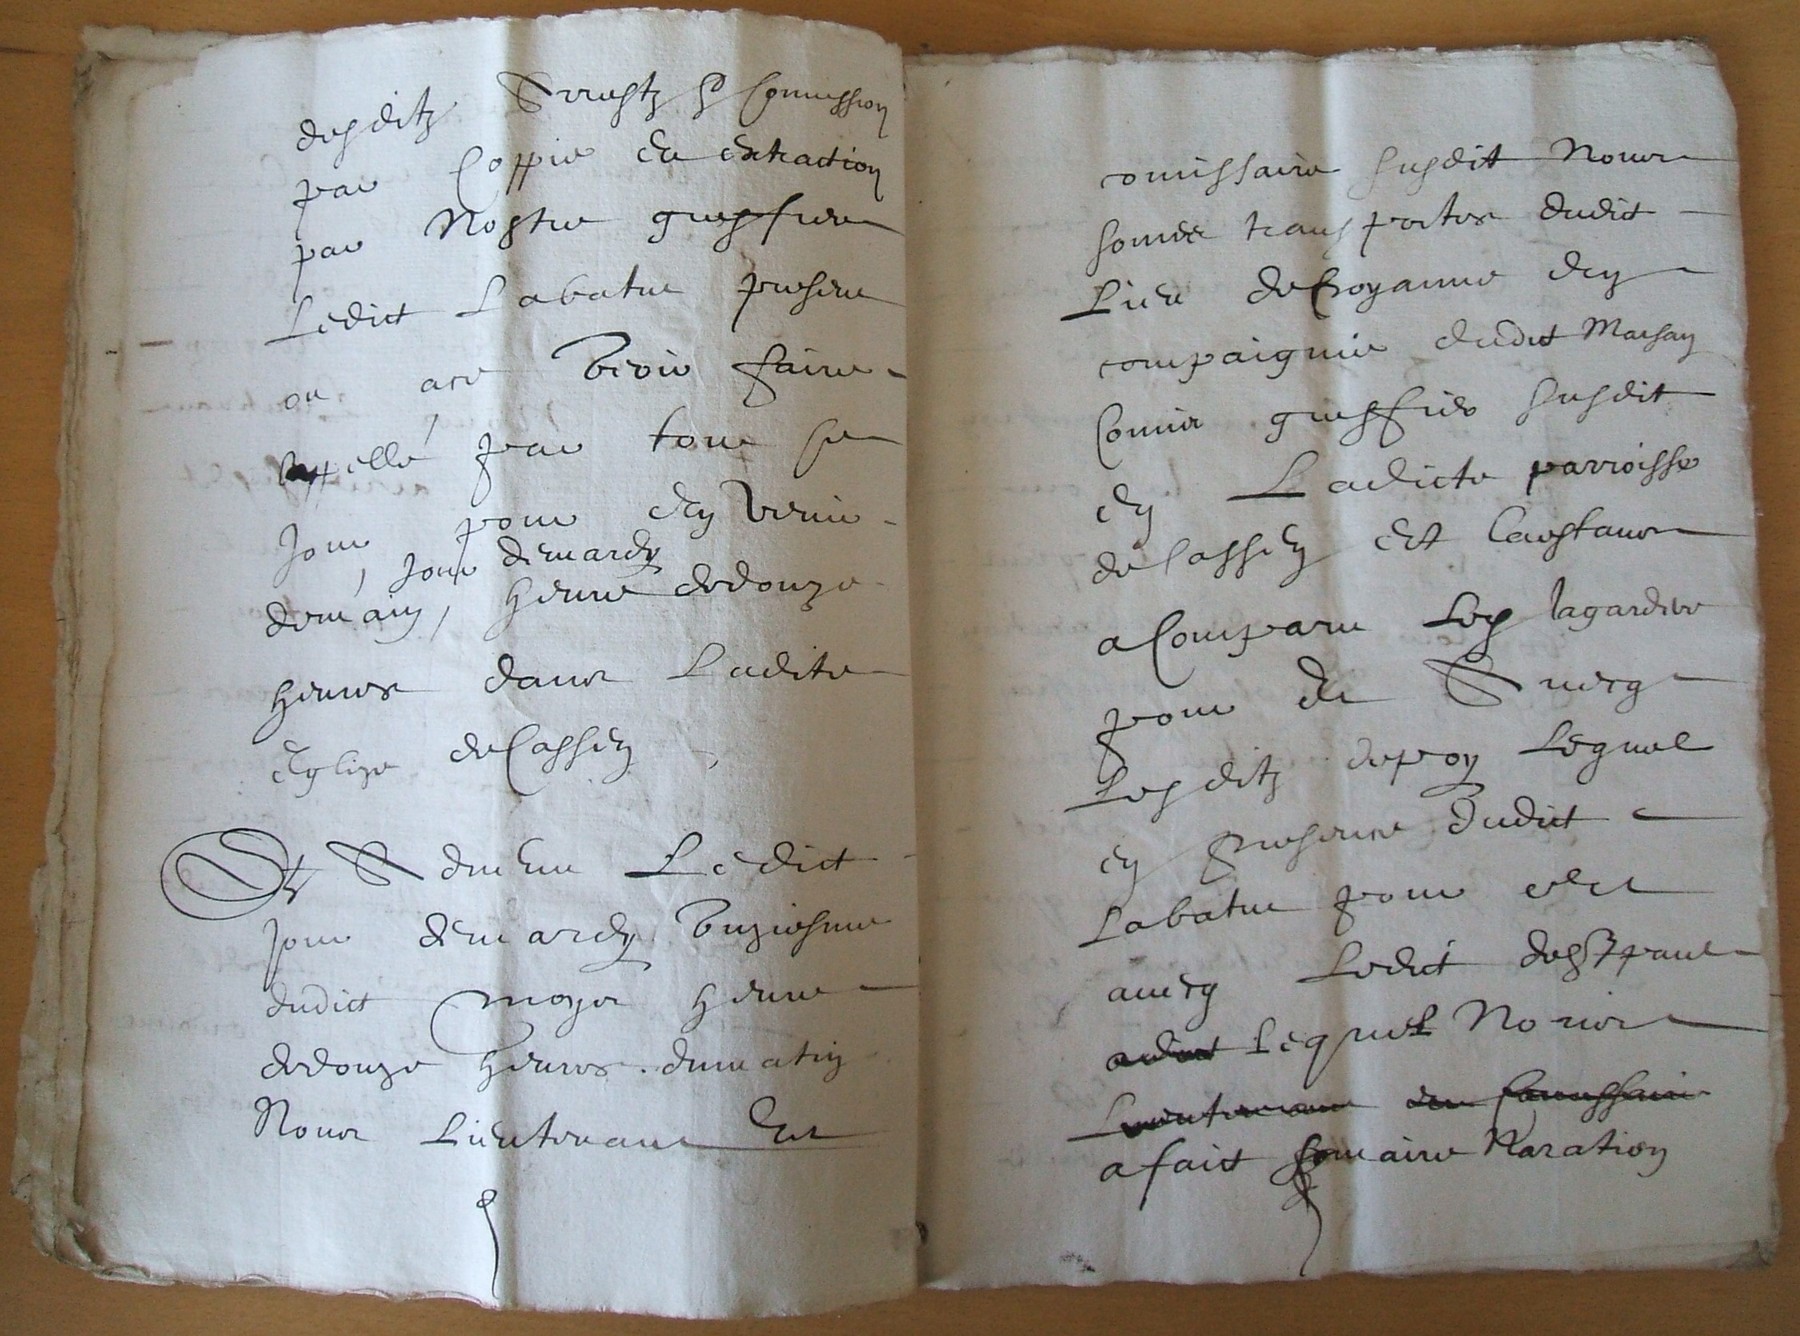 desditz Arrestz & Commission
par Coppie et extraction
par Nostre greffier
Ledict Labatut present
ou ace voir faire
appellé par tout ce
Jour pour en venir
Jour de mardy
demain, heure de douze
heures dans Ladite
Eglize de Cassen
Et Advenu Ledict
Jour de mardy unziesme
dudict moys heure
de douze heures du matin
Nous Lieutenant Et
comissaire susdit Nous
sommes transportes dudit
Lieu de Poyanne en
compaignie dudit Marsan
Commis greffier susdit
en Ladicte parroisse
de Cassen Et Constans
a Comparu Les lagardere
pour et Avecq
Lesditz Lequel
en presence dudict
Labatut pour et
avecq Ledict
Lequel Nous
Lieutenant et Commissaire
a fait somaire Naration